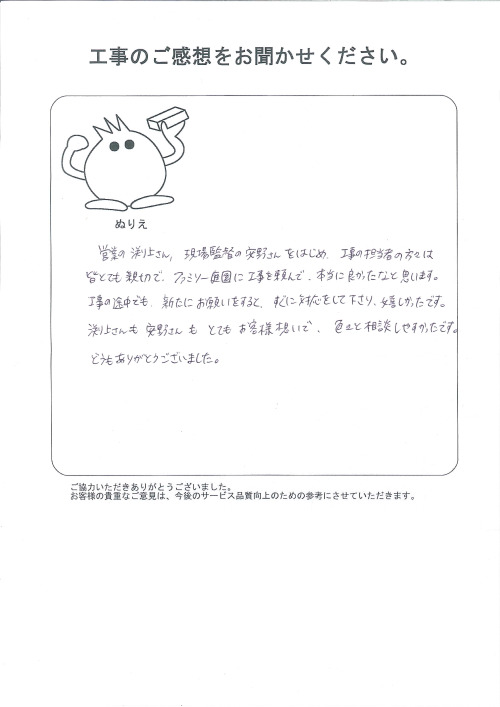 工事のご感想をお聞かせください。
ぬりえ
営業の渕上さん、現場監督の安野さんをはじめ、工事の担当者の方々は
皆とても親切で、ファミリー庭園に工事を頼んで、本当に良かったなと思います。
工事の途中でも、新たにお願いをすると、すぐに対応をして下さり、嬉しかったです。
渕上さんも安野さんもとてもお客様想いで、色々と相談しやすかったです。
どうもありがとうございました。
ご協力いただきありがとうございました。
お客様の貴重なご意見は、今後のサービス品質向上のための参考にさせていただきます。